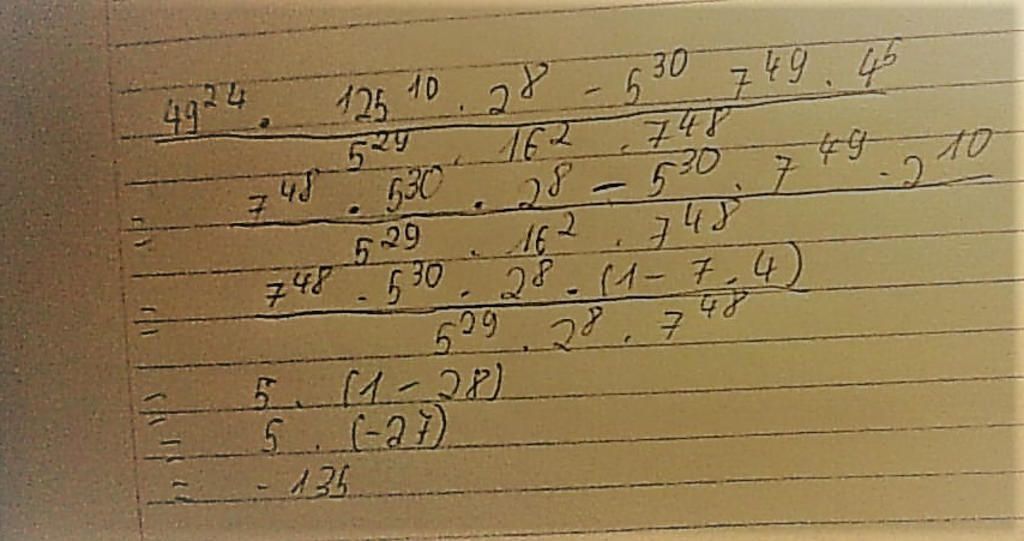 49²⁴ · 125¹⁰ · 2⁸ − 5³⁰ 7⁴⁹ · 4⁵
5²⁹ · 16² · 7⁴⁸
= 7⁴⁸ · 5³⁰ · 2⁸ − 5³⁰ · 7⁴⁹ · 2¹⁰
5²⁹ · 16² · 7⁴⁸
= 7⁴⁸ · 5³⁰ · 2⁸ · (1 − 7 · 4)
5²⁹ · 2⁸ · 7⁴⁸
= 5 · (1 − 28)
= 5 · (−27)
= −135